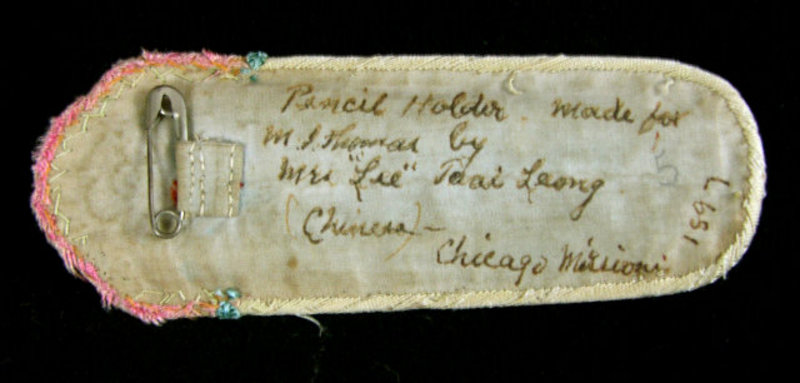 Pencil Holder. made for
M. J. Thomas by
Mrs "Lee" Taai Leong.
(Chinese) -
Chicago Mission.
1897
5